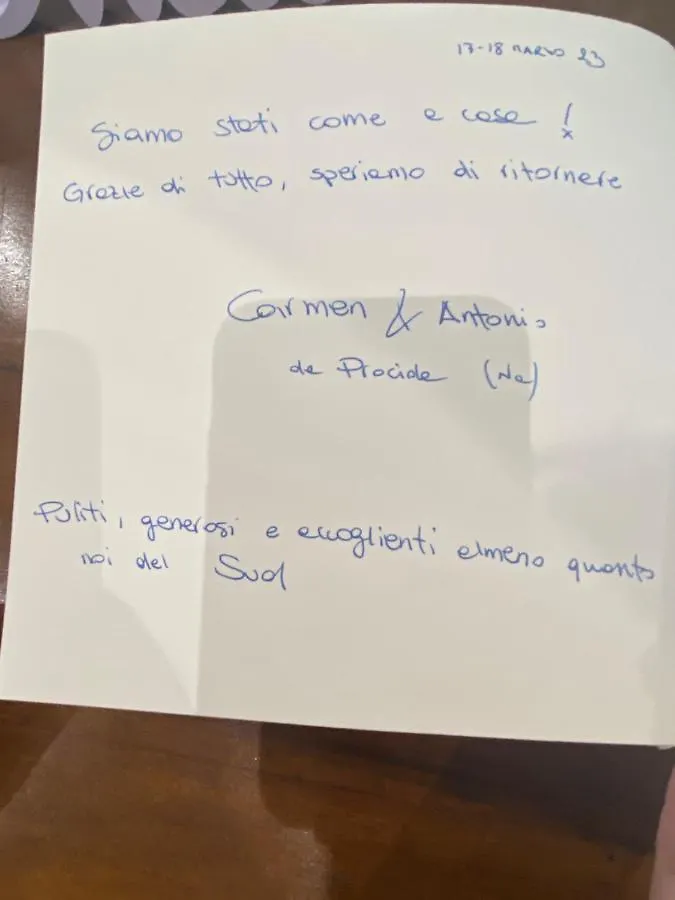 17-18 MARZO 23
Siamo stati come a casa!
Grazie di tutto, speriamo di ritornare
Carmen & Antonio
da Procida (Na)
Puliti, generosi e accoglienti almeno quanto
noi del Sud